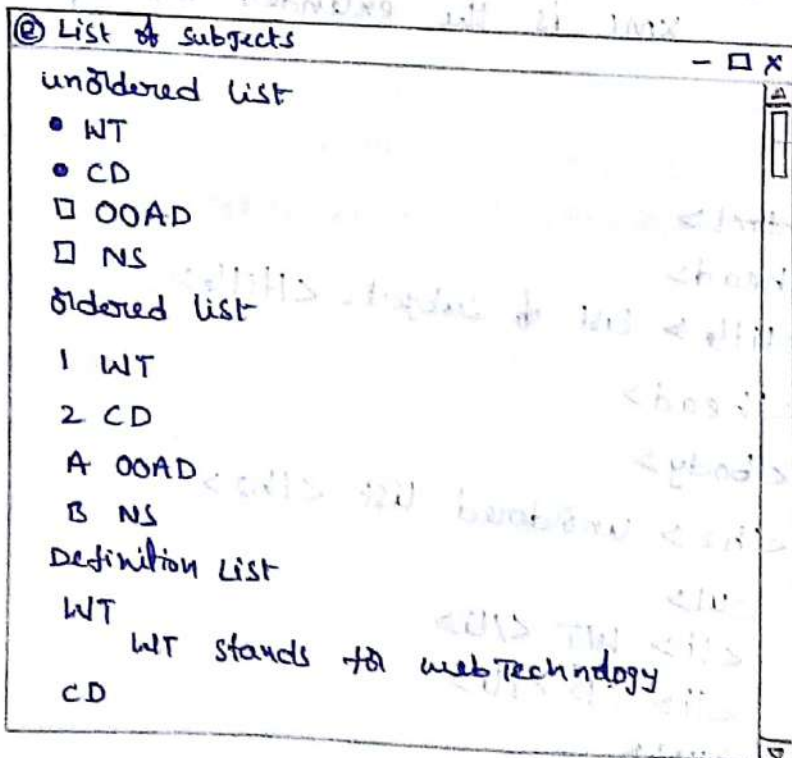 @ List of subjects
- □ x
unordered list
• WT
• CD
□ OOAD
□ NS
ordered list
1 WT
2 CD
A OOAD
B NS
Definition List
WT
WT stands for web Technology
CD